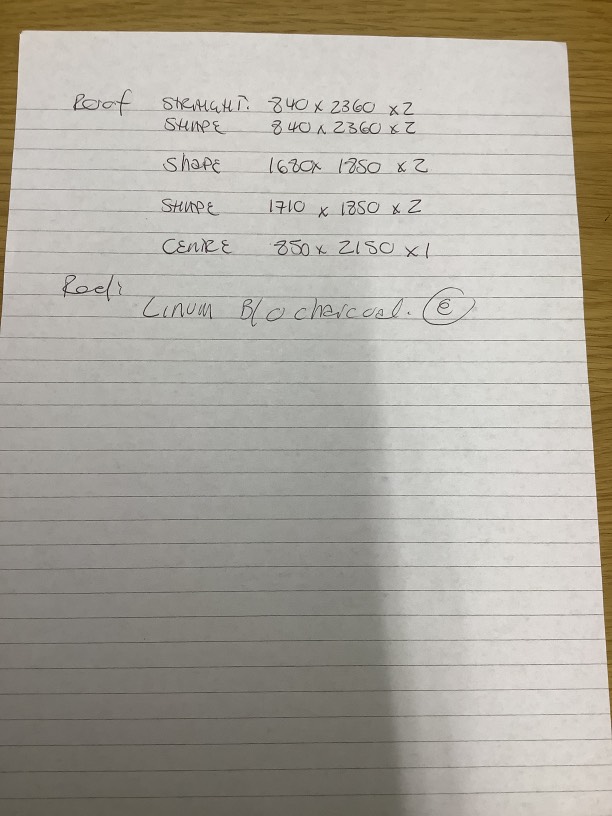 Roof STRAIGHT. 840 x 2360 x 2
SHAPE 840 x 2360 x 2
ShAPE 1680x 1850 x 2
SHAPE 1710 x 1850 x 2
CENRE 850 x 2150 x 1
Linum B/o charcoal. e